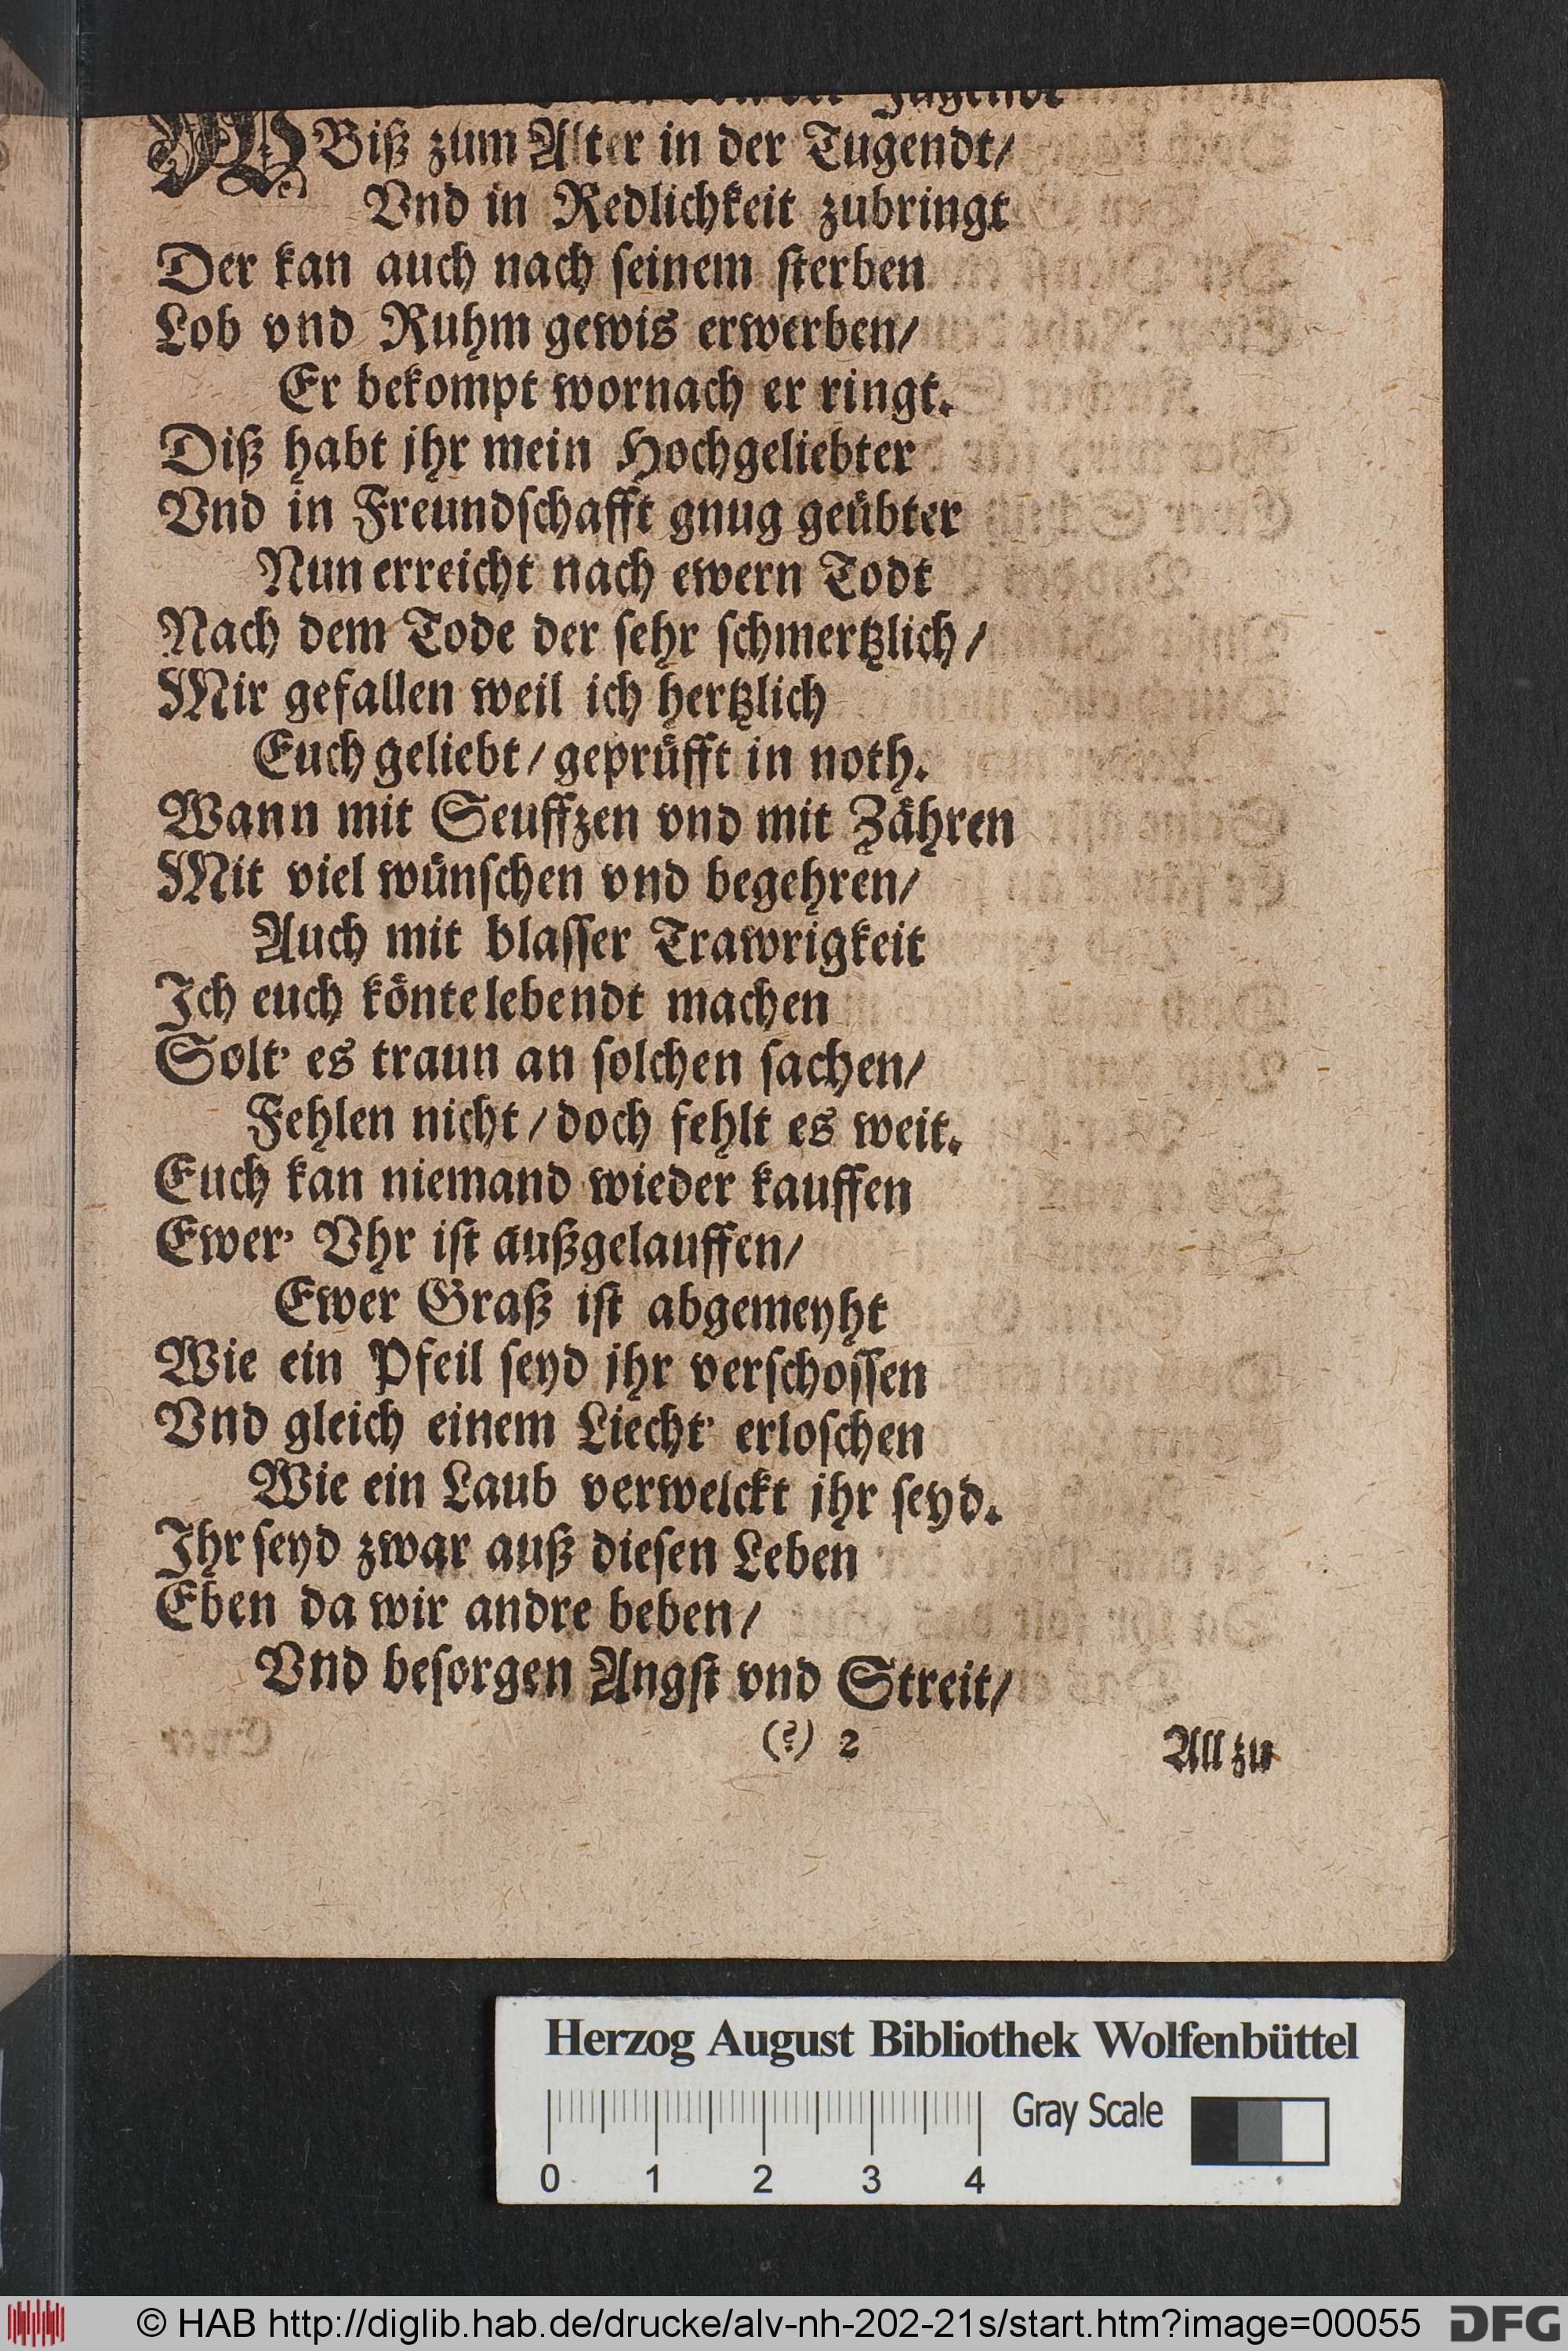 Jugendt
W Biß zum Alter in der Tugendt/
Vnd in Redlichkeit zubringt
Der kan auch nach seinem sterben
Lob vnd Ruhm gewis erwerben/
Er bekompt wornach er ringt.
Diß habt jhr mein Hochgeliebter
Vnd in Freundschafft gnug geübter
Nun erreicht nach ewern Todt
Nach dem Tode der sehr schmertzlich/
Mir gefallen weil ich hertzlich
Euch geliebt/ geprüfft in noth.
Wann mit Seuffzen vnd mit Zähren
Mit viel wünschen vnd begehren/
Auch mit blasser Trawrigkeit
Ich euch könte lebendt machen
Solt' es traun an solchen sachen/
Fehlen nicht/ doch fehlt es weit.
Euch kan niemand wieder kauffen
Ewer' Vhr ist außgelauffen/
Ewer Graß ist abgemeyht
Wie ein Pfeil seyd jhr verschossen
Vnd gleich einem Liecht' erloschen
Wie ein Laub verwelckt jhr seyd.
Ihr seyd zwar auß diesen Leben
Eben da wir andre beben/
Vnd besorgen Angst vnd Streit/
(?) 2 All zu
Herzog August Bibliothek Wolfenbüttel
Gray Scale
0 1 2 3 4
© HAB http://diglib.hab.de/drucke/alv-nh-202-21s/start.htm?image=00055 DFG